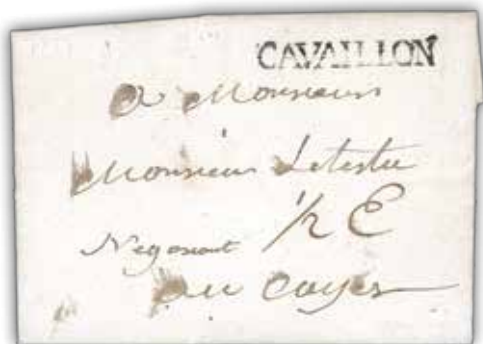 CAVAILLON
A Monsieur
Monsieur Letestu
Negociant 1/2 E
au Cayes